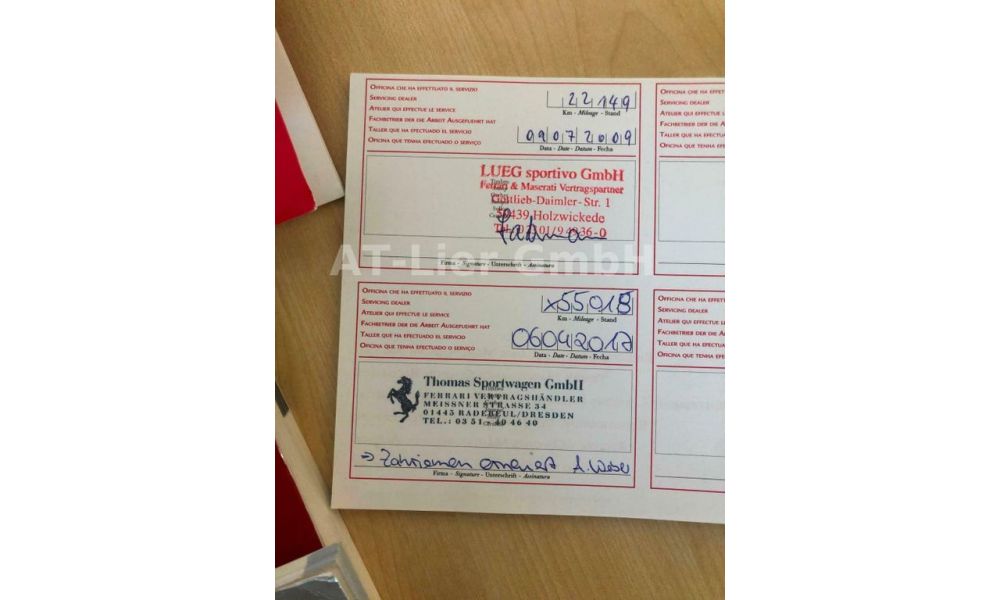 OFFICINA CHE HA EFFETTUATO IL SERVIZIO
SERVICING DEALER
ATELIER QUI EFFECTUE LE SERVICE
FACHBETRIEB DER DIE ARBEIT AUSGEFUEHRT HAT
TALLER QUE HA EFECTUADO EL SERVICIO
OFICINA QUE TENHA EFECTUADO O SERVIÇO
22149
Km - Mileage - Stand
09072009
Data - Date - Datum - Fecha
LUEG sportivo GmbH
Ferrari & Maserati Vertragspartner
Gottlieb-Daimler-Str. 1
59439 Holzwickede
Firma - Signature - Unterschrift - Assinatura
AT-Lier GmbH
OFFICINA CHE HA EFFETTUATO IL SERVIZIO
SERVICING DEALER
ATELIER QUI EFFECTUE LE SERVICE
FACHBETRIEB DER DIE ARBEIT AUSGEFUEHRT HAT
TALLER QUE HA EFECTUADO EL SERVICIO
OFICINA QUE TENHA EFECTUADO O SERVIÇO
x55018
Km - Mileage - Stand
06042017
Data - Date - Datum - Fecha
Thomas Sportwagen GmbH
FERRARI VERTRAGSHÄNDLER
MEISSNER STRASSE 34
01445 RADEBEUL/DRESDEN
TEL.: 03 51 40 46 40
=> Zahnriemen erneuert A. Weber
Firma - Signature - Unterschrift - Assinatura
OFFICINA CHE HA EFFETT
SERVICING DEALER
ATELIER QUI EFFECTUE L
FACHBETRIEB DER DIE A
TALLER QUE HA EFECTUA
OFICINA QUE TENHA EFE
OFFICINA CHE HA EFFETT
SERVICING DEALER
ATELIER QUI EFFECTUE LE
FACHBETRIEB DER DIE AR
TALLER QUE HA EFECTUA
OFICINA QUE TENHA EFEC